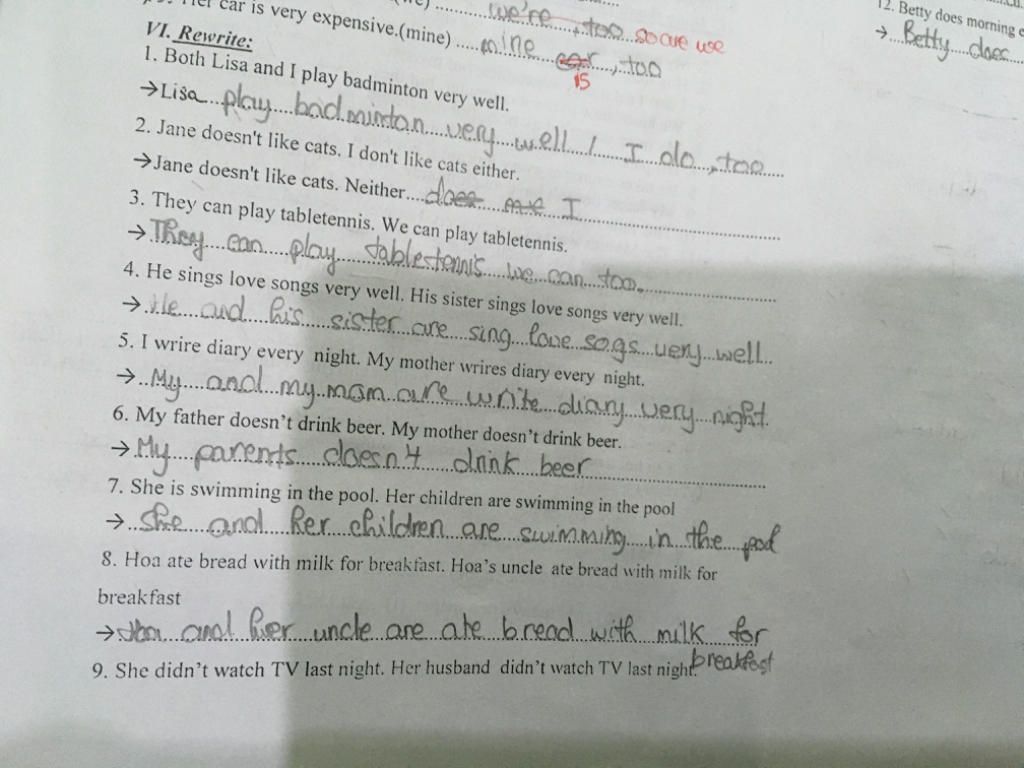 Her car is very expensive.(mine) .....mine is, too
we're, too so are we
VI. Rewrite:
1. Both Lisa and I play badminton very well.
→Lisa play badminton very well / I do, too
2. Jane doesn't like cats. I don't like cats either.
→Jane doesn't like cats. Neither does me I
3. They can play tabletennis. We can play tabletennis.
→ They can play tabletennis we can too.
4. He sings love songs very well. His sister sings love songs very well.
→ He and his sister are sing love sogs very well
5. I wrire diary every night. My mother wrires diary every night.
→ My and my mom are write diary very night.
6. My father doesn't drink beer. My mother doesn't drink beer.
→ My parents doesn't drink beer
7. She is swimming in the pool. Her children are swimming in the pool
→ She and her children are swimming in the pool
8. Hoa ate bread with milk for breakfast. Hoa's uncle ate bread with milk for
breakfast
→ Hoa and her uncle are ate bread with milk for
breakfast
9. She didn't watch TV last night. Her husband didn't watch TV last night.
12. Betty does morning
→ Betty does